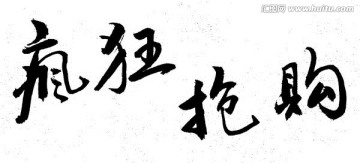 瘋狂抢购
汇图网 www.huitu.com